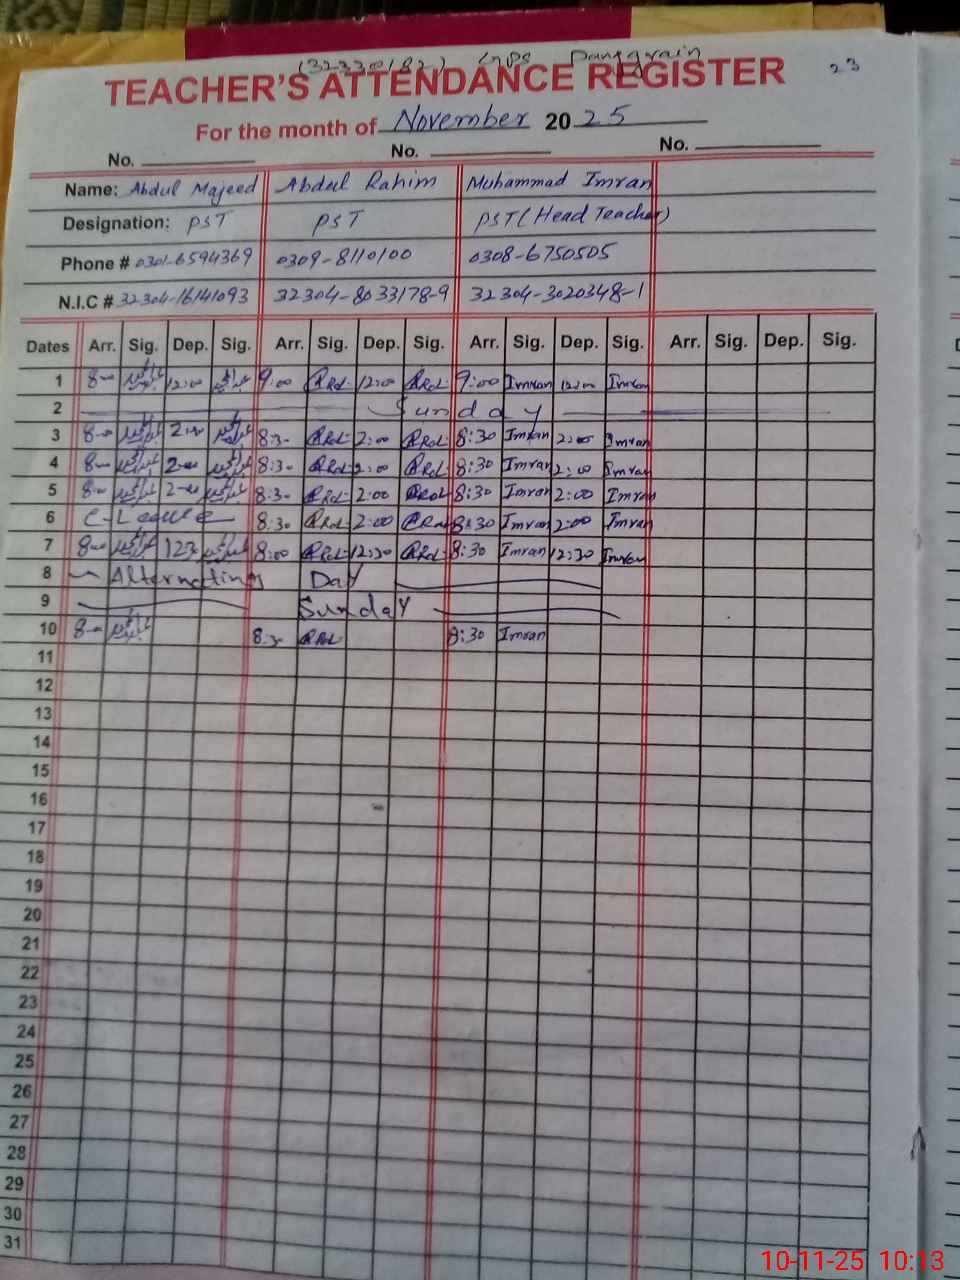 (32330182) GPS Danggrain
TEACHER'S ATTENDANCE REGISTER 23
For the month of November 2025
No. No. No.
Name: Abdul Majeed Abdul Rahim Muhammad Imran
Designation: PST PST PST (Head Teacher)
Phone # 0301-6594369 0309-8110100 0308-6750505
N.I.C # 32304-16141093 32304-8033178-9 32304-3020348-1
Dates Arr. Sig. Dep. Sig. Arr. Sig. Dep. Sig. Arr. Sig. Dep. Sig. Arr. Sig. Dep. Sig.
1 8-00 12:00 9:00 12:00 9:00 Imran 12:00 Imran
2 Sunday
3 8-00 2:00 8:30 2:00 8:30 Imran 2:00 Imran
4 8-00 2-00 8:30 2:00 8:30 Imran 2:00 Imran
5 8-00 2-00 8:30 2:00 8:30 Imran 2:00 Imran
6 C-Leave 8:30 2:00 8:30 Imran 2:00 Imran
7 8-00 1230 8:00 12:30 8:30 Imran 12:30 Imran
8 Alternating Day
9 Sunday
10 8-00 8:30 8:30 Imran
11
12
13
14
15
16
17
18
19
20
21
22
23
24
25
26
27
28
29
30
31
10-11-25 10:13